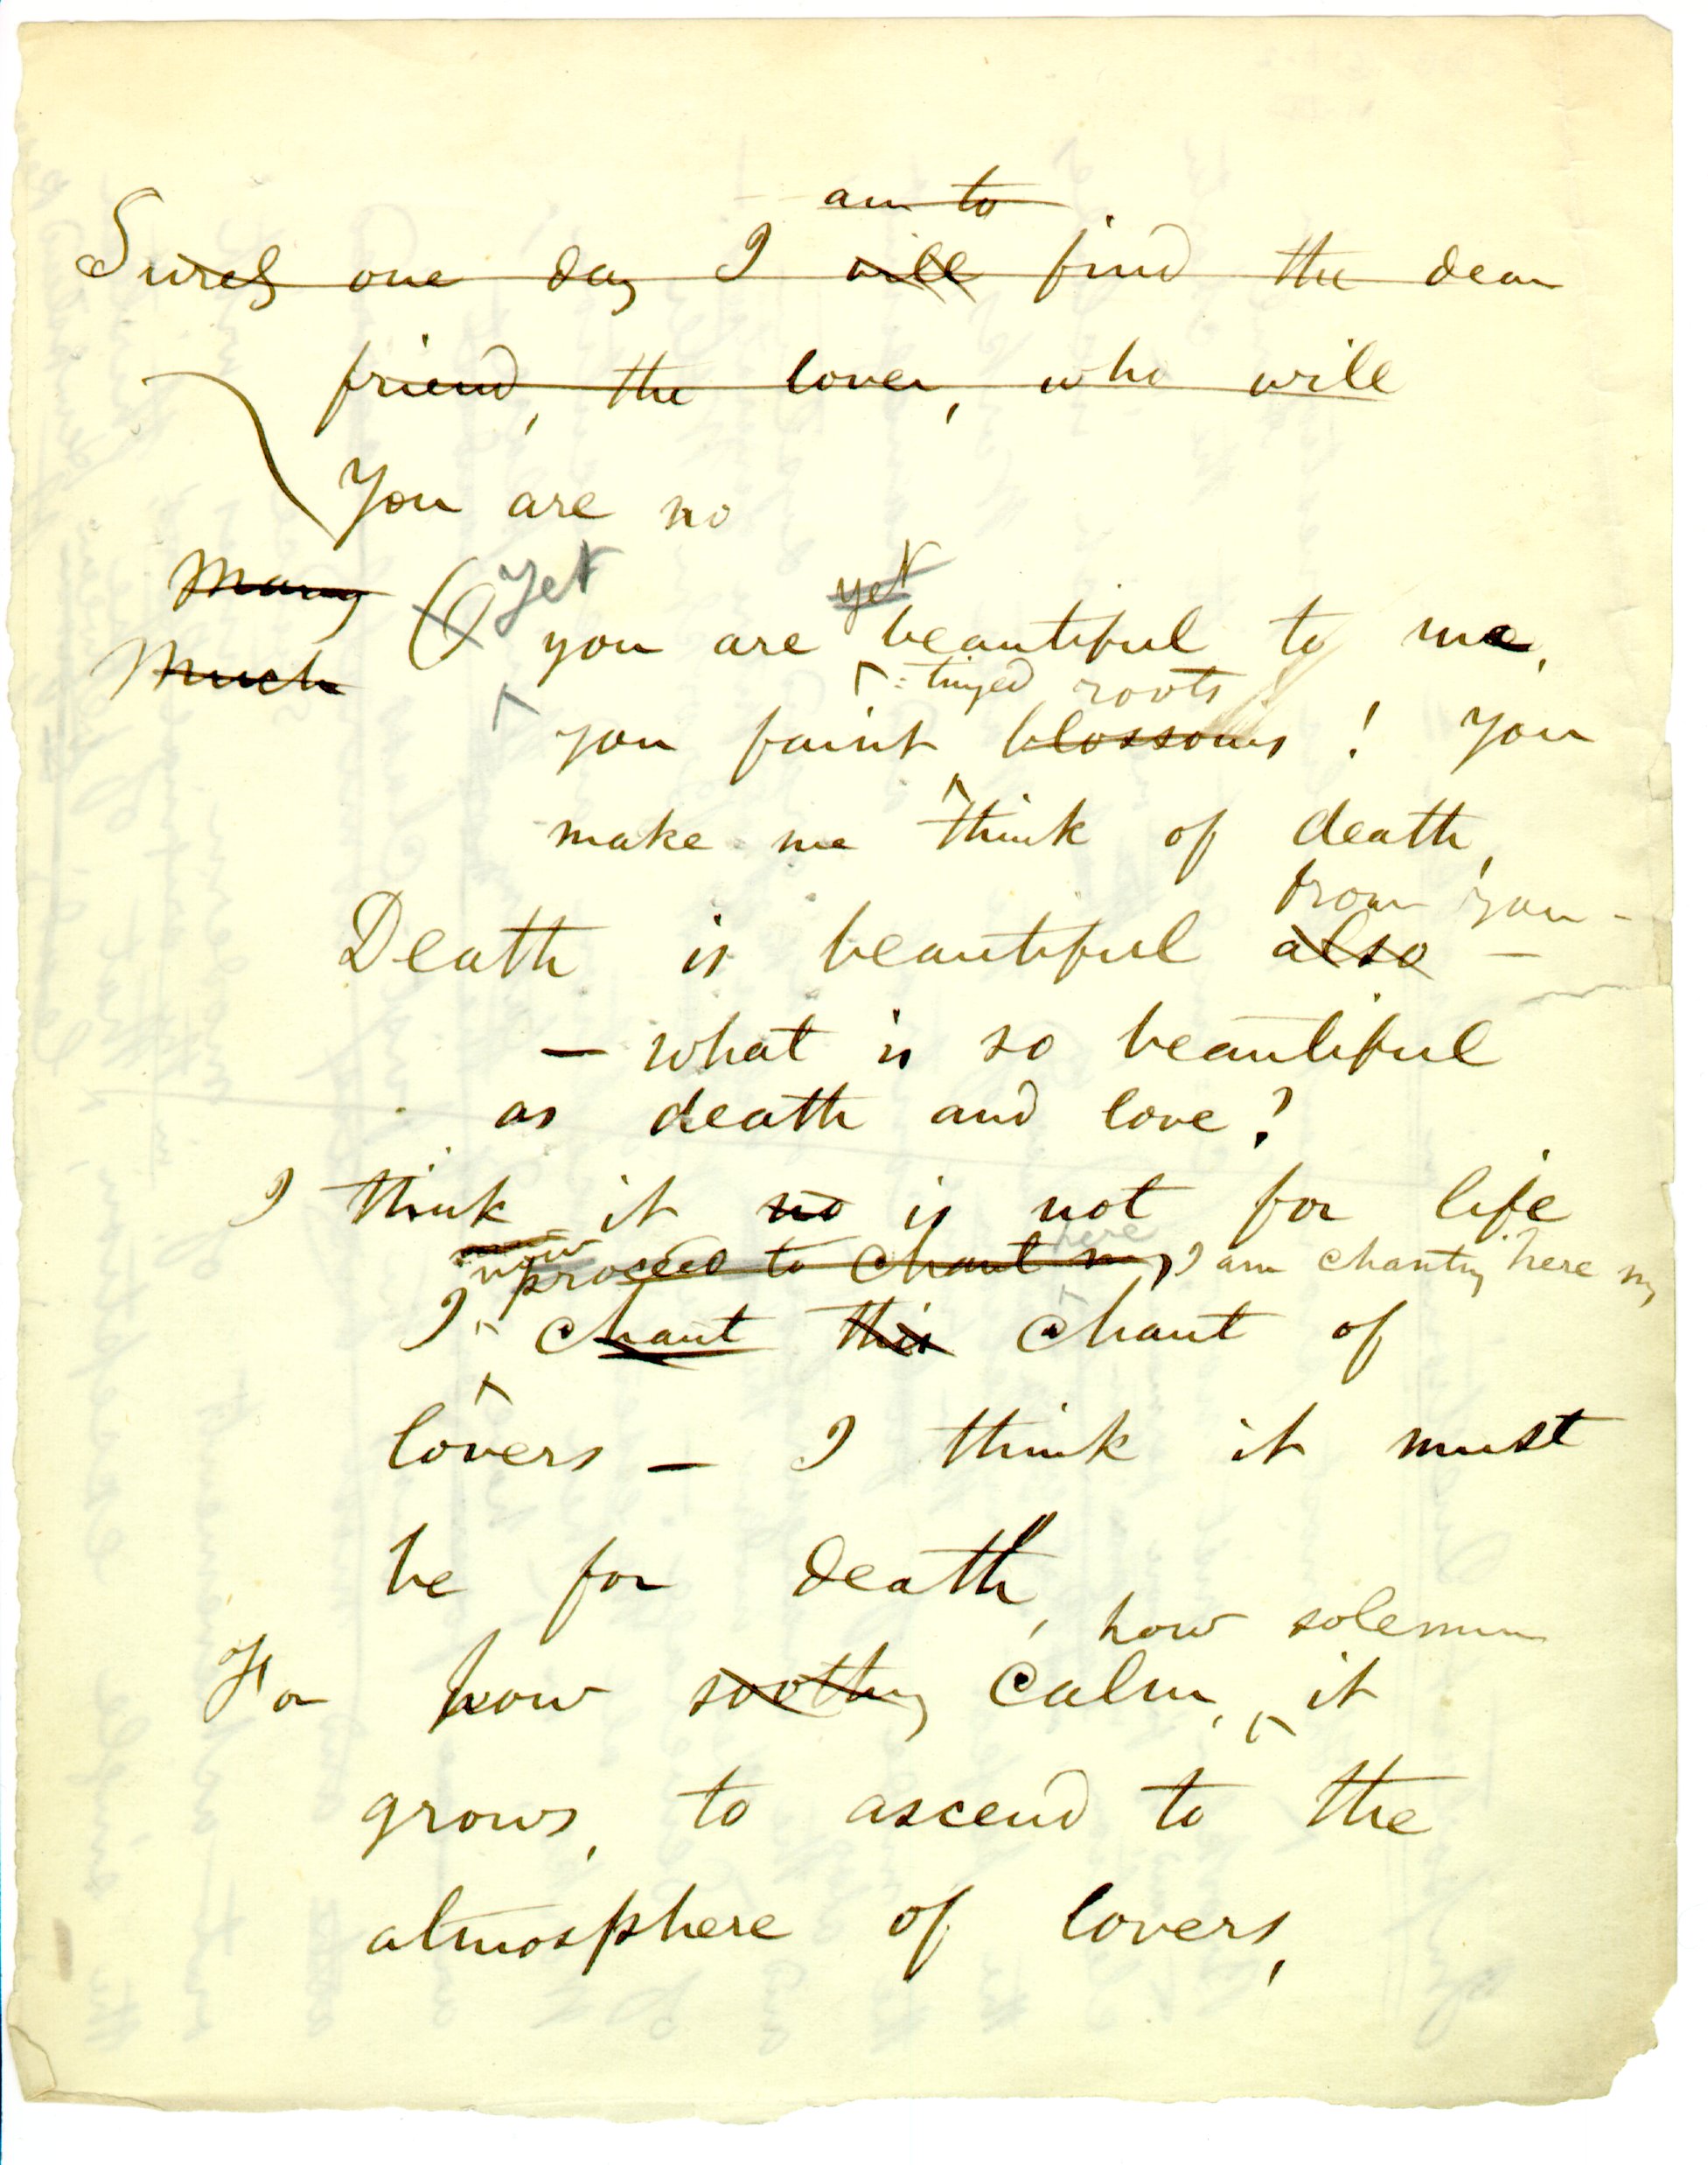 am to
Surely one day I will find the dear
friend, the lover, who will
You are no
Many
Much
O Yet you are yet beautiful to me,
: tinged roots
you faint blossoms ! you
make me think of death,
from you –
Death is beautiful also –
– what is so beautiful
as death and love?
I think it no is not for life
now proceed to chant my, here I am chanting here my
I chant this chant of
lovers – I think it must
be for death,
how solemn
For how soothing calm, it
grows, to ascend to the
atmosphere of lovers,